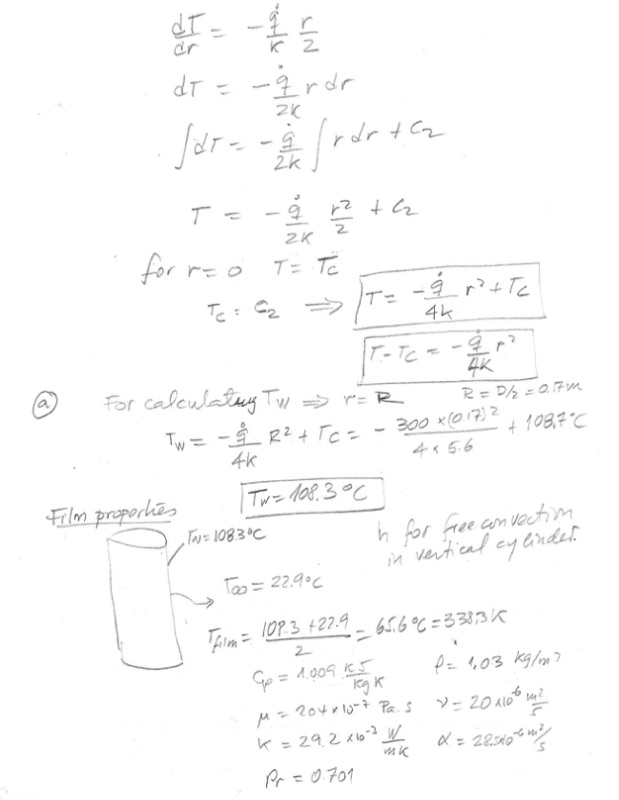 dT/dr = - q̇/k r/2
dT = - q̇/2k r dr
∫dT = - q̇/2k ∫ r dr + C2
T = - q̇/2k r²/2 + C2
for r=0 T = Tc
Tc = C2 ⇒ T = - q̇/4k r² + Tc
T-Tc = - q̇/4k r²
(a) For calculating Tw ⇒ r=R R = D/2 = 0.17m
Tw = - q̇/4k R² + Tc = - 300 x(0.17)²/4 x 5.6 + 108.7°C
Tw = 108.3°C
Film properties
h for free convection
in vertical cylinder.
Tw=108.3°C
T∞ = 22.9°C
Tfilm = 108.3 + 22.9/2 = 65.6°C = 338.3K
Cp = 1.009 kJ/kg K ρ = 1,03 kg/m³
μ = 204x10⁻⁷ Pa.s ν = 20x10⁻⁶ m²/s
K = 29.2 x10⁻³ W/mK α = 28.5x10⁻⁶ m²/s
Pr = 0.701